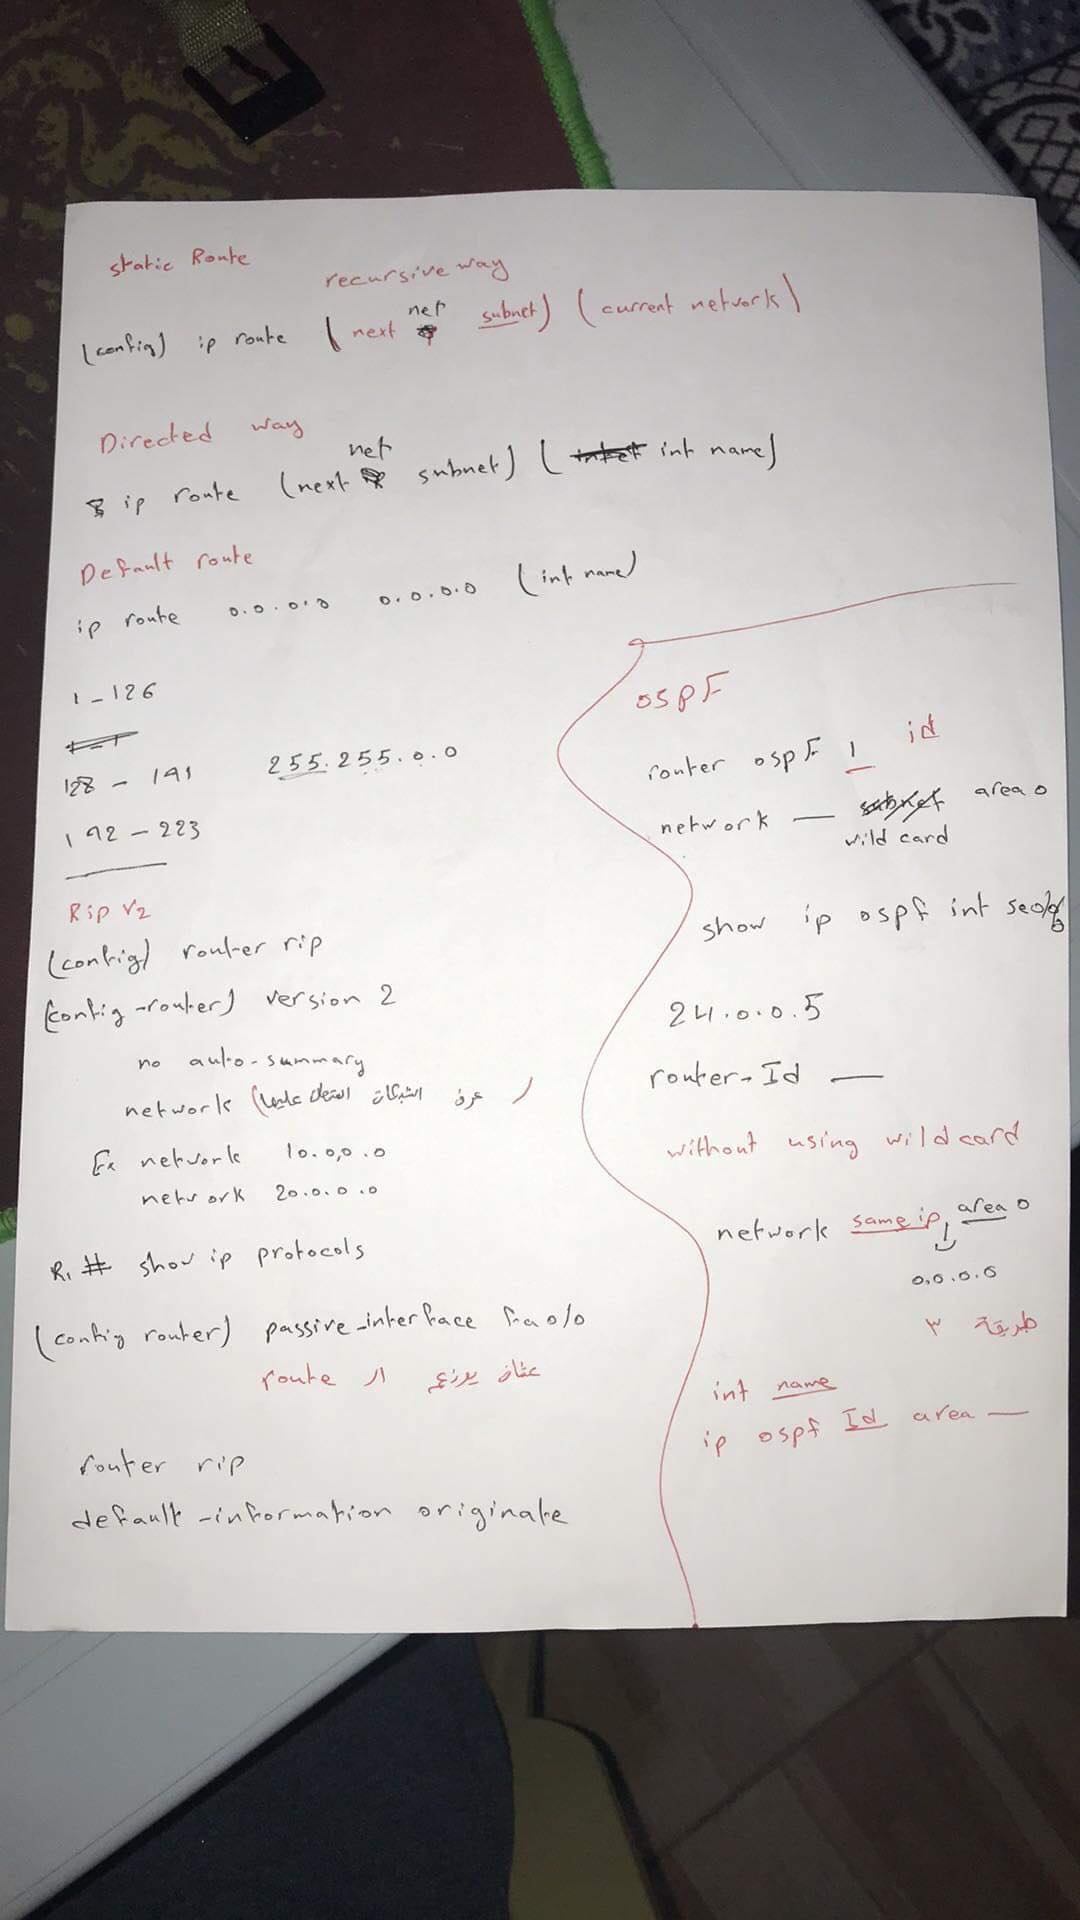 static Route
recursive way
(config) ip route (next net subnet) (current network)
Directed way
ip route (next net subnet) (int name)
Default route
ip route 0.0.0.0 0.0.0.0 (int name)
1 - 126
128 - 191 255.255.0.0
192 - 223
Rip V2
(config) router rip
(config-router) version 2
no auto-summary
network (عرف الشبكات المتصل عليها)
Ex network 10.0.0.0
network 20.0.0.0
R1 # show ip protocols
(config router) passive-interface fa0/0
عشان يوزع ال route
router rip
default-information originate
OSPF
router ospF 1 id
network — subnet area 0
wild card
show ip ospf int se0/0
24.0.0.5
router-Id —
without using wildcard
network same ip, area 0
0.0.0.0
طريقة ٣
int name
ip ospf Id area —